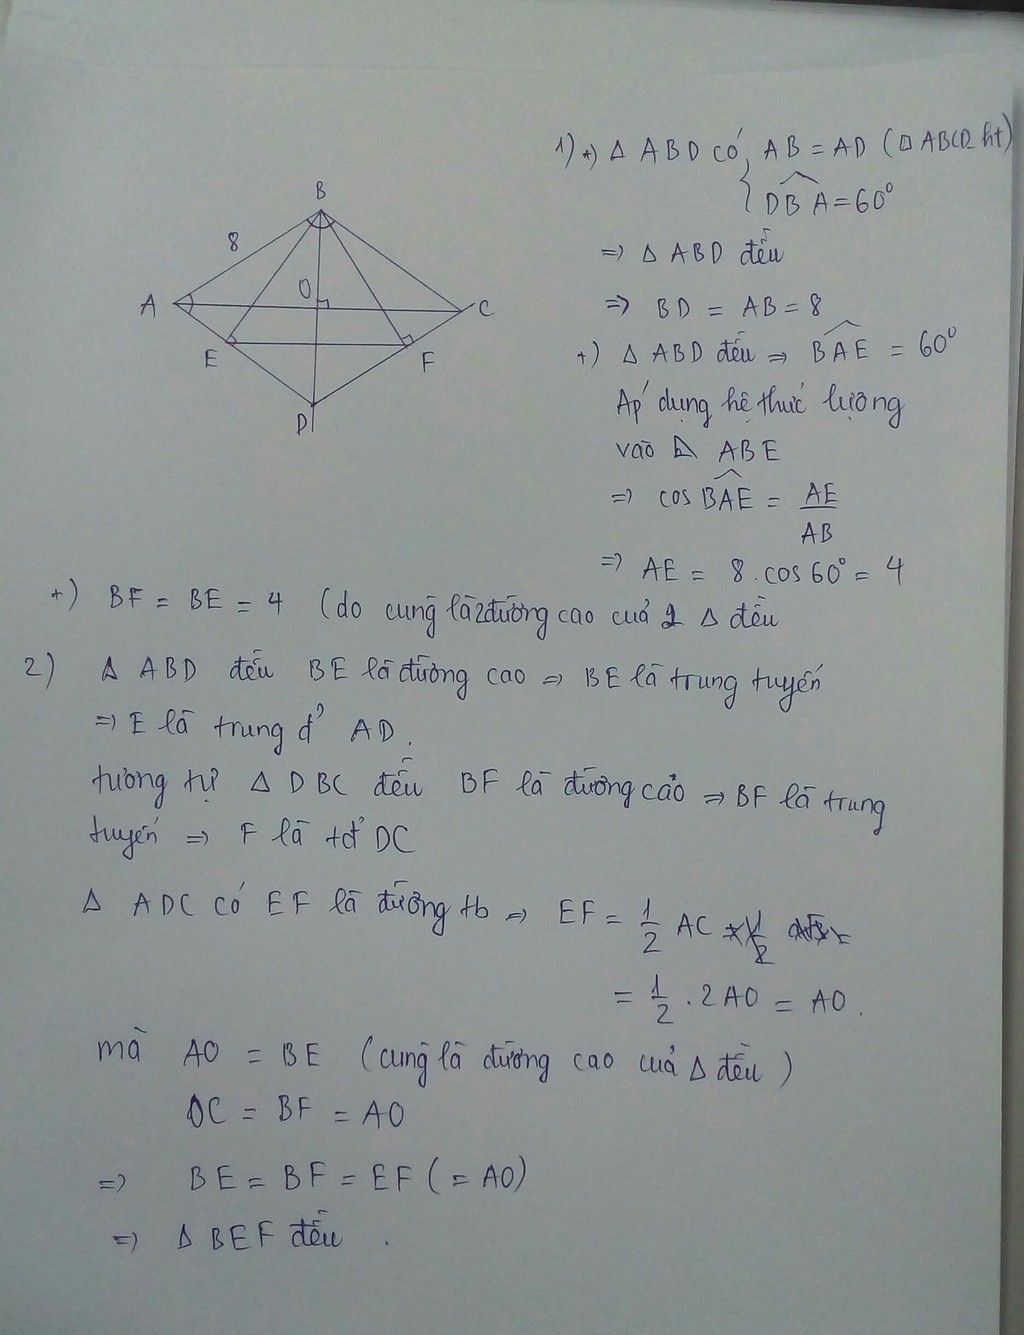 1) +) Δ ABD có AB = AD (□ ABCD ht)
{ DBA = 60°
=> Δ ABD đều
=> BD = AB = 8
+) Δ ABD đều => BAE = 60°
Áp dụng hệ thức lượng
vào ⊿ ABE
=> cos BAE = AE / AB
=> AE = 8 . cos 60° = 4
B
8
A
O
C
E
F
D
+) BF = BE = 4 (do cùng là 2 đường cao của 2 Δ đều
2) Δ ABD đều BE là đường cao => BE là trung tuyến
=> E là trung đ' AD.
tương tự Δ DBC đều BF là đường cao => BF là trung
tuyến => F là tđ' DC
Δ ADC có EF là đường tb => EF = 1/2 AC
= 1/2 . 2 AO = AO.
mà AO = BE (cùng là đường cao của Δ đều)
OC = BF = AO
=> BE = BF = EF (= AO)
=> Δ BEF đều .